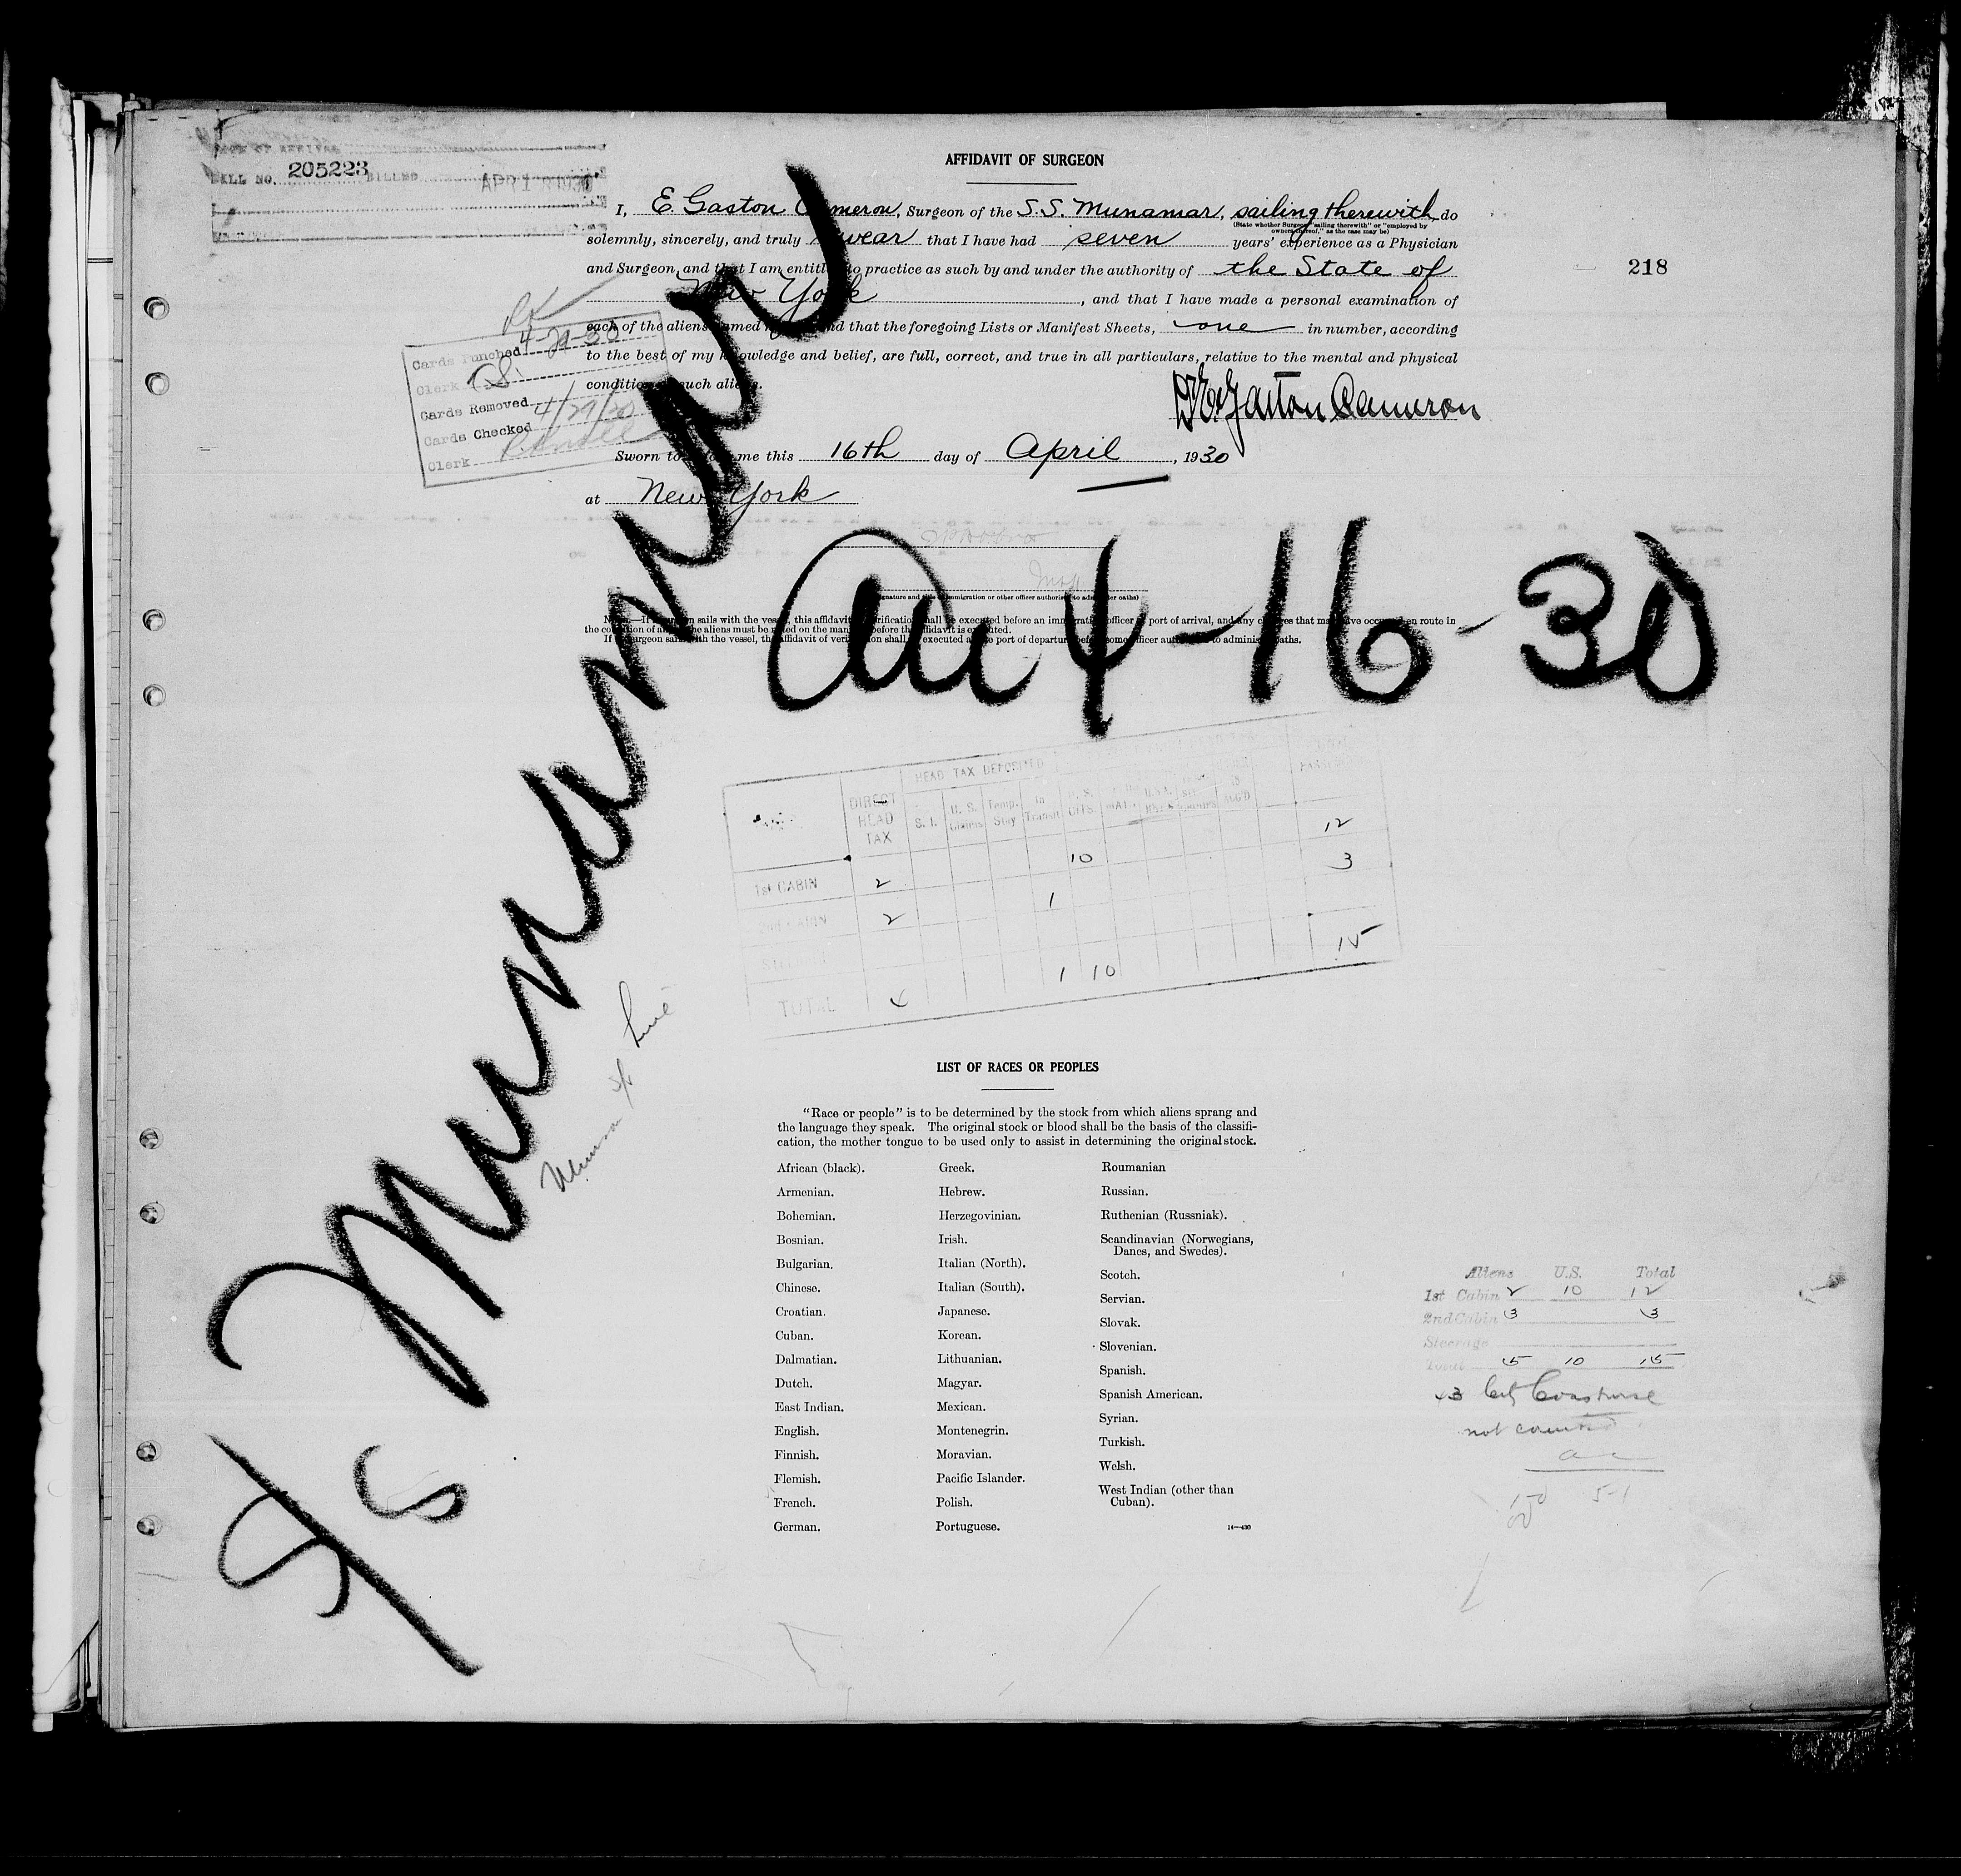 BILL NO. 205223 BILLED APR 18 1930
AFFIDAVIT OF SURGEON
218
I, E Gaston Cameron, Surgeon of the S.S. Munamar, sailing therewith do
(State whether Surgeon "sailing therewith" or "employed by
owners thereof," as the case may be)
solemnly, sincerely, and truly swear that I have had seven years' experience as a Physician
and Surgeon, and that I am entitled to practice as such by and under the authority of the State of
New York, and that I have made a personal examination of
each of the aliens named herein and that the foregoing Lists or Manifest Sheets, one in number, according
to the best of my knowledge and belief, are full, correct, and true in all particulars, relative to the mental and physical
condition of such aliens.
Dr E. Gaston Cameron
Sworn to before me this 16th day of April, 1930
at New York
Cards Punched 4-29-30
Clerk
Cards Removed 4/29/30
Cards Checked
Clerk
(Signature and title of immigration or other officer authorized to administer oaths)
NOTE.—If surgeon sails with the vessel, this affidavit of verification shall be executed before an immigration officer at port of arrival, and any changes that may have occurred en route in
the condition of any of the aliens must be noted on the manifest before the affidavit is executed.
S/S Munamar
Arr 4-16-30
Munson S/S Line
HEAD TAX DEPOSITED
DIRECT HEAD TAX
S. I.
U. S. Citizens
Temp. Stay
In Transit
U. S. CITS.
1st CABIN 2 10 12
2nd CABIN 2 1 3
TOTAL 4 1 10 15
LIST OF RACES OR PEOPLES
"Race or people" is to be determined by the stock from which aliens sprang and
the language they speak. The original stock or blood shall be the basis of the classifi-
cation, the mother tongue to be used only to assist in determining the original stock.
African (black).
Armenian.
Bohemian.
Bosnian.
Bulgarian.
Chinese.
Croatian.
Cuban.
Dalmatian.
Dutch.
East Indian.
English.
Finnish.
Flemish.
French.
German.
Greek.
Hebrew.
Herzegovinian.
Irish.
Italian (North).
Italian (South).
Japanese.
Korean.
Lithuanian.
Magyar.
Mexican.
Montenegrin.
Moravian.
Pacific Islander.
Polish.
Portuguese.
Roumanian
Russian.
Ruthenian (Russniak).
Scandinavian (Norwegians,
Danes, and Swedes).
Scotch.
Servian.
Slovak.
Slovenian.
Spanish.
Spanish American.
Syrian.
Turkish.
Welsh.
West Indian (other than
Cuban).
14—430
Aliens U.S. Total
1st Cabin 2 10 12
2nd Cabin 3 3
Steerage
Total 5 10 15
not counted